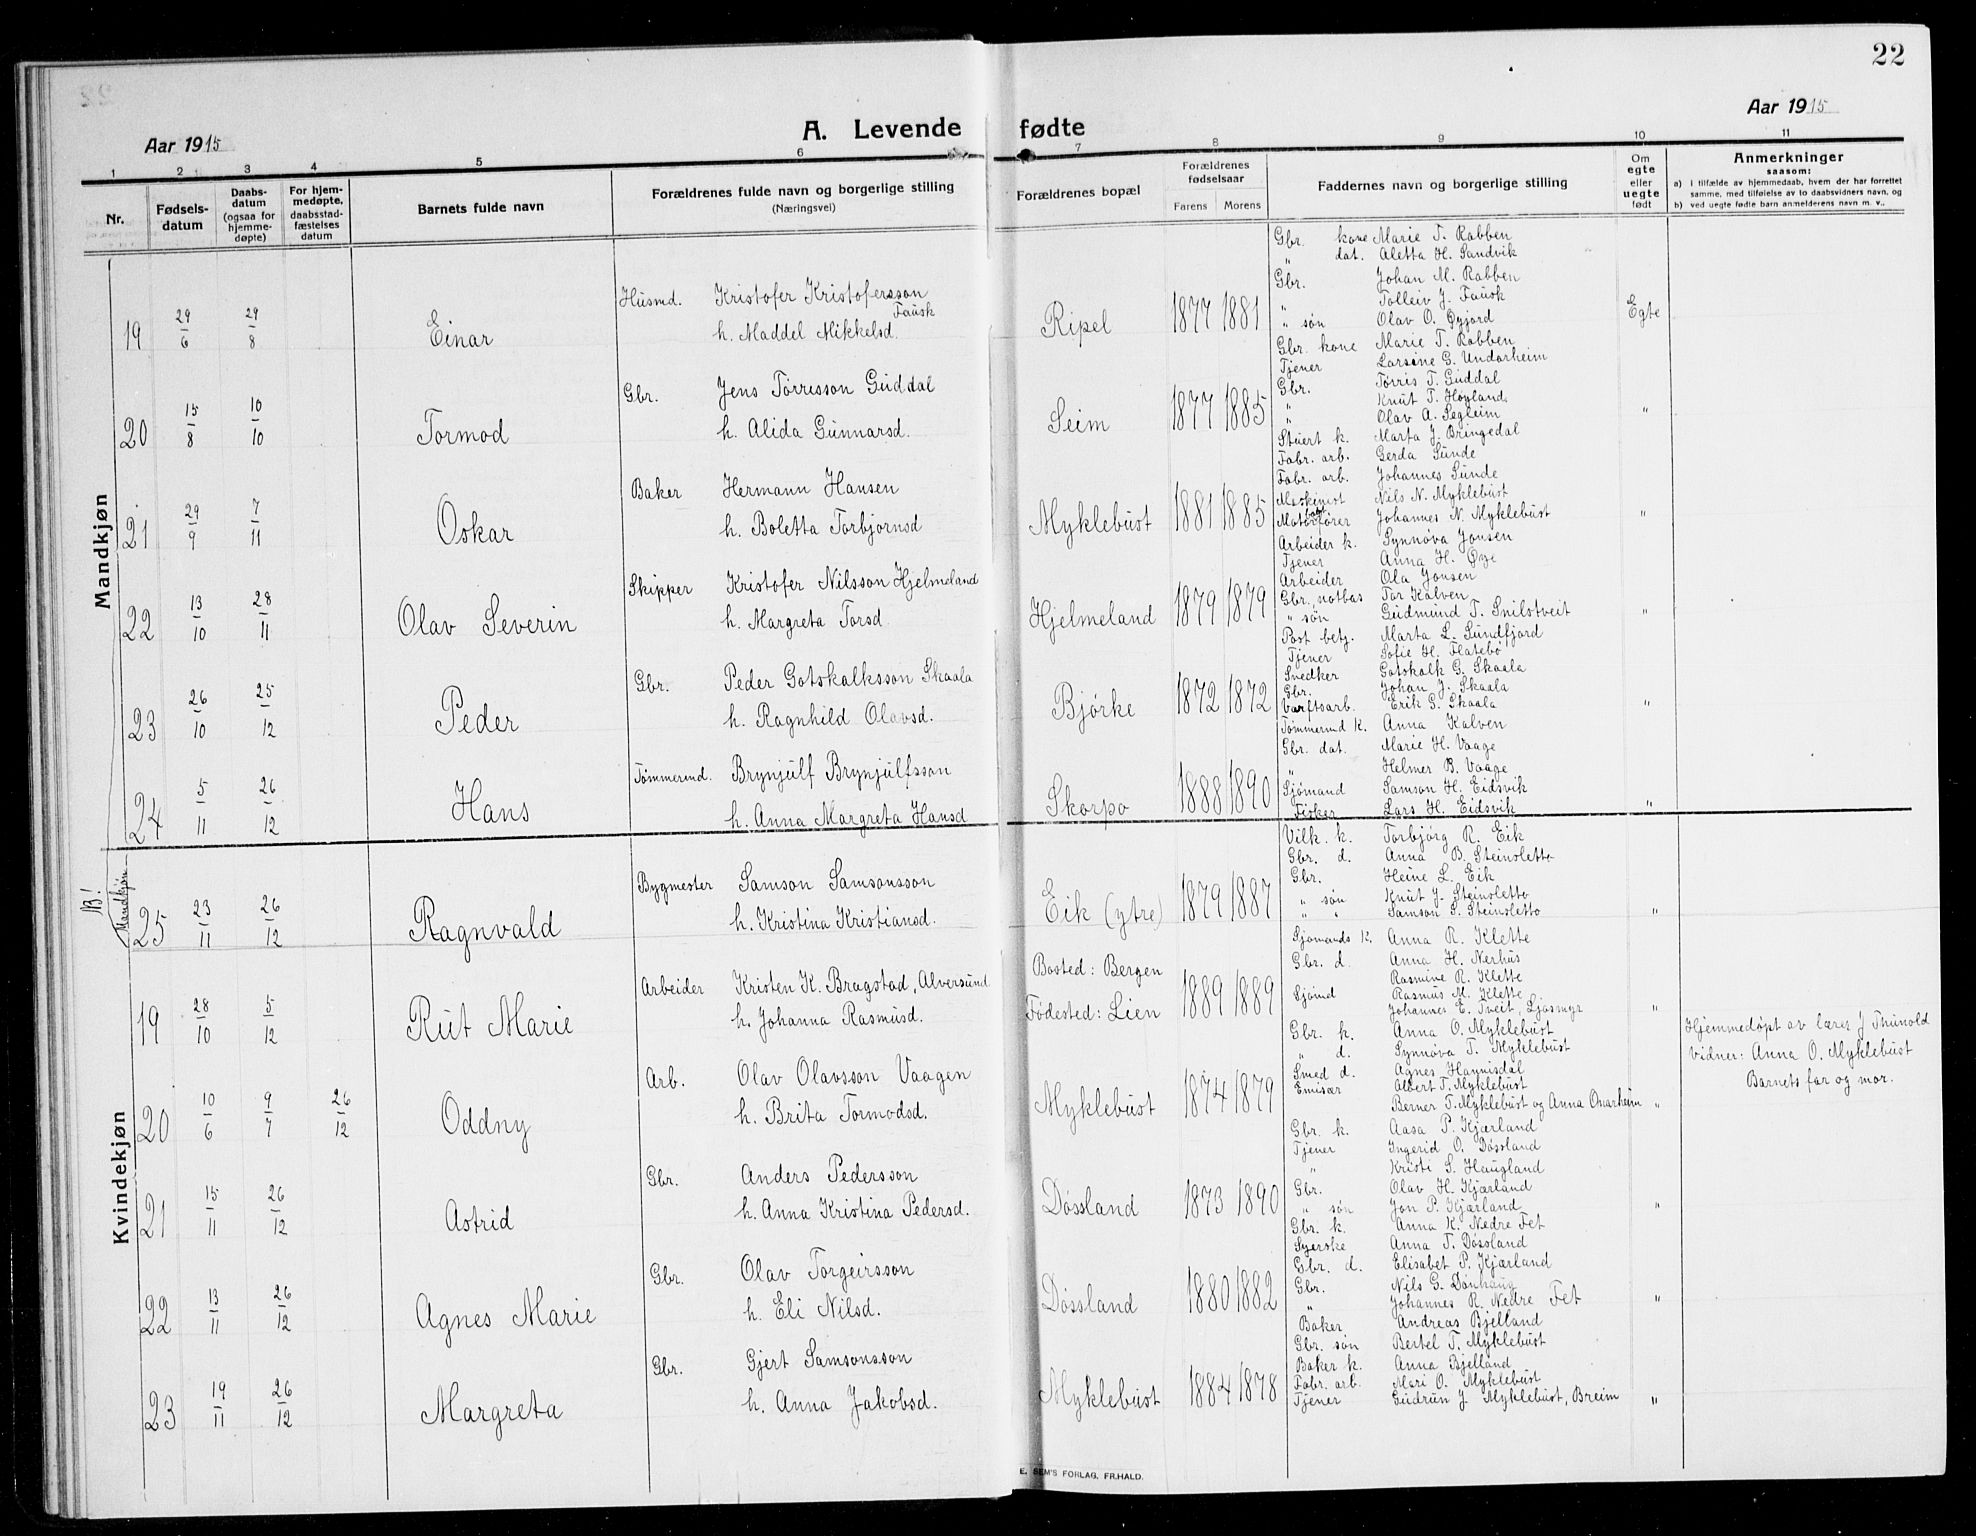 22
Aar 1915
A. Levende fødte
Aar 1915
1 2 3 4 5 6 7 8 9 10 11
Nr.
Fødsels-
datum
Daabs-
datum
(ogsaa for
hjemme-
døpte)
For hjem-
medøpte,
daabsstad-
fæstelses
datum
Barnets fulde navn
Forældrenes fulde navn og borgerlige stilling
(Næringsvei)
Forældrenes bopæl
Forældrenes
fødselsaar
Farens Morens
Faddernes navn og borgerlige stilling
Om
egte
eller
uegte
født
Anmerkninger
saasom:
a) i tilfælde av hjemmedaab, hvem der har forrettet
samme, med tilføielse av to daabsvidners navn, og
b) ved uegte fødte barn anmelderens navn m. v..
Mandkjøn
19 29/6 29/8 Einar
Husmd. Kristofer Kristofersson
Fausk
h. Maddel Mikkelsd.
Ripel 1877 1881
Gbr. kone Marie T. Rabben
" dat. Aletta H. Sandvik
Gbr. Johan M. Rabben
" Tolleiv J. Fausk
" søn Olav O. Øyjord
Egte
20 15/8 10/10 Tormod
Gbr. Jens Tørresson Guddal
h. Alida Gunnarsd.
Seim 1877 1885
Gbr. kone Marie T. Rabben
Tjener Larsine G. Undarheim
Gbr. Tørris T. Guddal
" Knut T. Høyland
" Olav A. Segleim
"
21 29/9 7/11 Oskar
Baker Hermann Hansen
h. Boletta Torbjørnsd
Myklebust 1881 1885
Stuert k. Marta J. Bringedal
Fabr. arb. Gerda Sunde
Fabr. arb. Johannes Sunde
Maskinist Nils N. Myklebust
Motorbaatfører Johannes N. Myklebust
"
22 13/10 28/11 Olav Severin
Skipper Kristofer Nilsson Hjelmeland
h. Margreta Torsd.
Hjelmeland 1879 1879
Arbeider k. Synnøva Jonsen
Tjener Anna H. Øye
Arbeider Ola Jonsen
Gbr., notbas Tor Kalven
" søn Gudmund T. Snilstveit
"
23 26/10 25/12 Peder
Gbr. Peder Gotskalksson Skaala
h. Ragnhild Olavsd.
Bjørke 1872 1872
Post betj. Marta L. Sundfjord
Tjener Sofie H. Flatebø
Snedker Gotskalk G. Skaala
Gbr. Johan J. Skaala
Varftsarb. Erik G. Skaala
"
24 5/11 26/12 Hans
Tømmermd. Brynjulf Brynjulfsson
h. Anna Margreta Hansd
Skorpo 1888 1890
Tømmermd k. Anna Kalven
Gbr. dat. Marie H. Vaage
" Helmer B. Vaage
Sjømand Samson H. Eidsvik
Fisker Lars H. Eidsvik
"
NB!
Mandkjøn
25 23/11 26/12 Ragnvald
Bygmester Samson Samsonsson
h. Kristina Kristiansd.
Eik (ytre) 1879 1887
Vilk. k. Torbjørg R. Eik
Gbr. d. Anna B. Steinsletto
Gbr. Heine L. Eik
" søn Knut J. Steinsletto
" " Samson S. Steinsletto
"
Kvindekjøn
19 28/10 5/12 Rut Marie
Arbeider Kristen K. Bragstad, Alversund
h. Johanna Rasmusd.
Bosted: Bergen
Fødested: Lien
1889 1889
Sjømands k. Anna R. Klette
Gbr. d. Anna H. Nerhus
Rasmine R. Klette
Sjømd Rasmus M. Klette
Johannes E. Tveit, Ljosmyr
"
20 10/6 9/7 26/12 Oddny
Arb. Olav Olavsson Vaagen
h. Brita Tormodsd.
Myklebust 1874 1879
Gbr. k. Anna O. Myklebust
" d. Synnøva T. Myklebust
Smed d. Agnes Hannisdal
Emisær Albert T. Myklebust
Berner T. Myklebust og Anna Onarheim
"
Hjemmedøpt av lærer J Thunold
Vidner: Anna O. Myklebust
Barnets far og mor.
21 15/11 26/12 Astrid
Gbr. Anders Pedersson
h. Anna Kristina Pedersd.
Døssland 1873 1890
Gbr. k. Aasa P. Kjærland
Tjener Ingerid O. Døssland
" Kristi S. Haugland
Gbr. Olav H. Kjærland
" søn Jon P. Kjærland
"
22 13/11 26/12 Agnes Marie
Gbr. Olav Torgeirsson
h. Eli Nilsd.
Døssland 1880 1882
Gbr. k. Anna K. Nedre Fet
Syerske Anna T. Døssland
Gbr. d. Elisabet P. Kjærland
Gbr. Nils G. Dønhaug
" Johannes R. Nedre Fet
"
23 19/11 26/12 Margreta
Gbr. Gjert Samsonsson
h. Anna Jakobsd.
Myklebust 1884 1878
Baker Andreas Bjelland
Gbr. søn Bertel T. Myklebust
Baker k. Anna Bjelland
Fabr. arb. Mari O. Myklebust
Tjener Gudrun J. Myklebust, Breim
"
E. SEM'S FORLAG, FR.HALD.